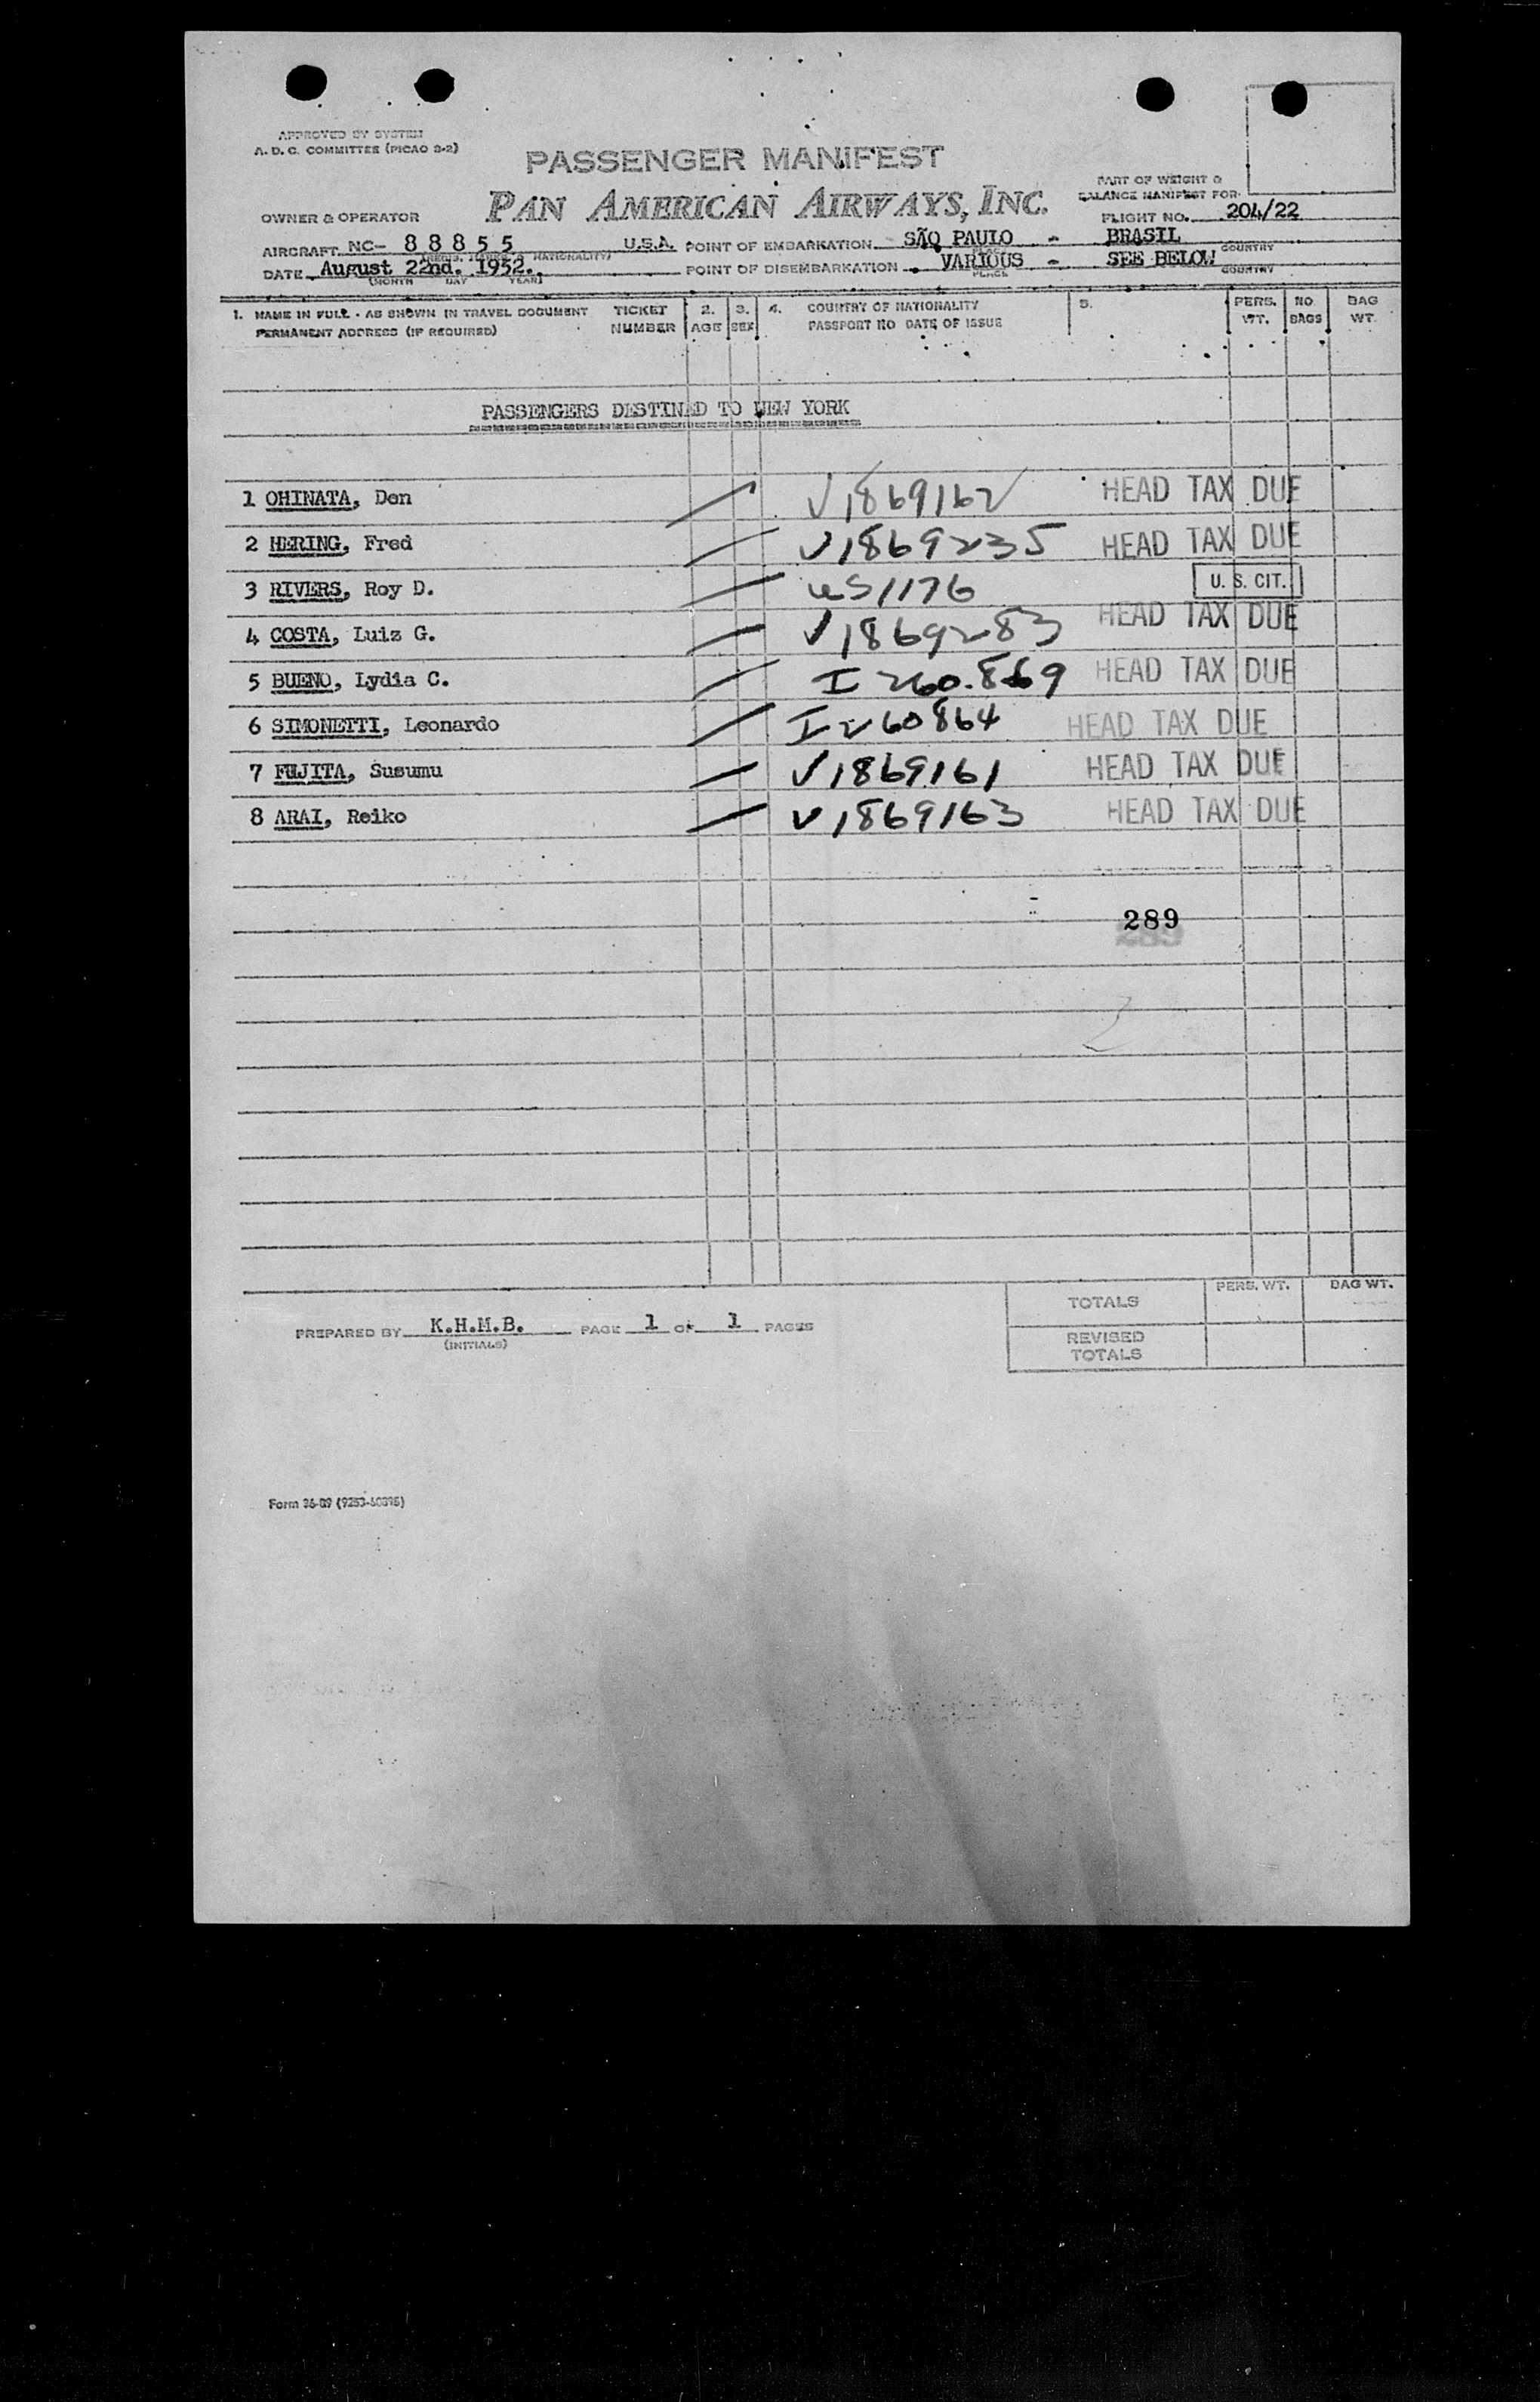 APPROVED BY SYSTEM
A. D. C. COMMITTEE (PICAO 3-2)
PASSENGER MANIFEST
PAN AMERICAN AIRWAYS, INC.
PART OF WEIGHT &
BALANCE MANIFEST FOR
FLIGHT NO. 204/22
OWNER & OPERATOR
AIRCRAFT NC- 88855 U.S.A. POINT OF EMBARKATION SÃO PAULO - BRASIL
NATIONALITY) PLACE COUNTRY
DATE August 22nd. 1952. POINT OF DISEMBARKATION VARIOUS - SEE BELOW
(MONTH DAY YEAR) PLACE COUNTRY
1. NAME IN FULL - AS SHOWN IN TRAVEL DOCUMENT TICKET 2. 3. 4. COUNTRY OF NATIONALITY 5. PERS. NO. BAG
PERMANENT ADDRESS (IF REQUIRED) NUMBER AGE SEX PASSPORT NO DATE OF ISSUE WT. BAGS WT.
PASSENGERS DESTINED TO NEW YORK
1 OHINATA, Den V1869162 HEAD TAX DUE
2 HERING, Fred V1869235 HEAD TAX DUE
3 RIVERS, Roy D. US1176 U. S. CIT.
4 COSTA, Luiz G. V1869283 HEAD TAX DUE
5 BUENO, Lydia C. I 260.869 HEAD TAX DUE
6 SIMONETTI, Leonardo I 260864 HEAD TAX DUE
7 FUJITA, Susumu V1869161 HEAD TAX DUE
8 ARAI, Reiko V1869163 HEAD TAX DUE
289
PERS. WT. BAG WT.
TOTALS
PREPARED BY K.H.M.B. PAGE 1 OF 1 PAGES
(INITIALS)
REVISED
TOTALS